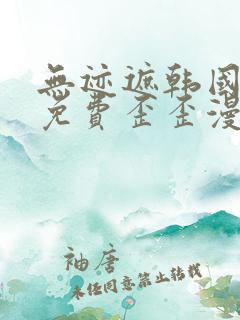 無迹遮韩国
免费歪歪漫
袖唐
未经同意禁止转载